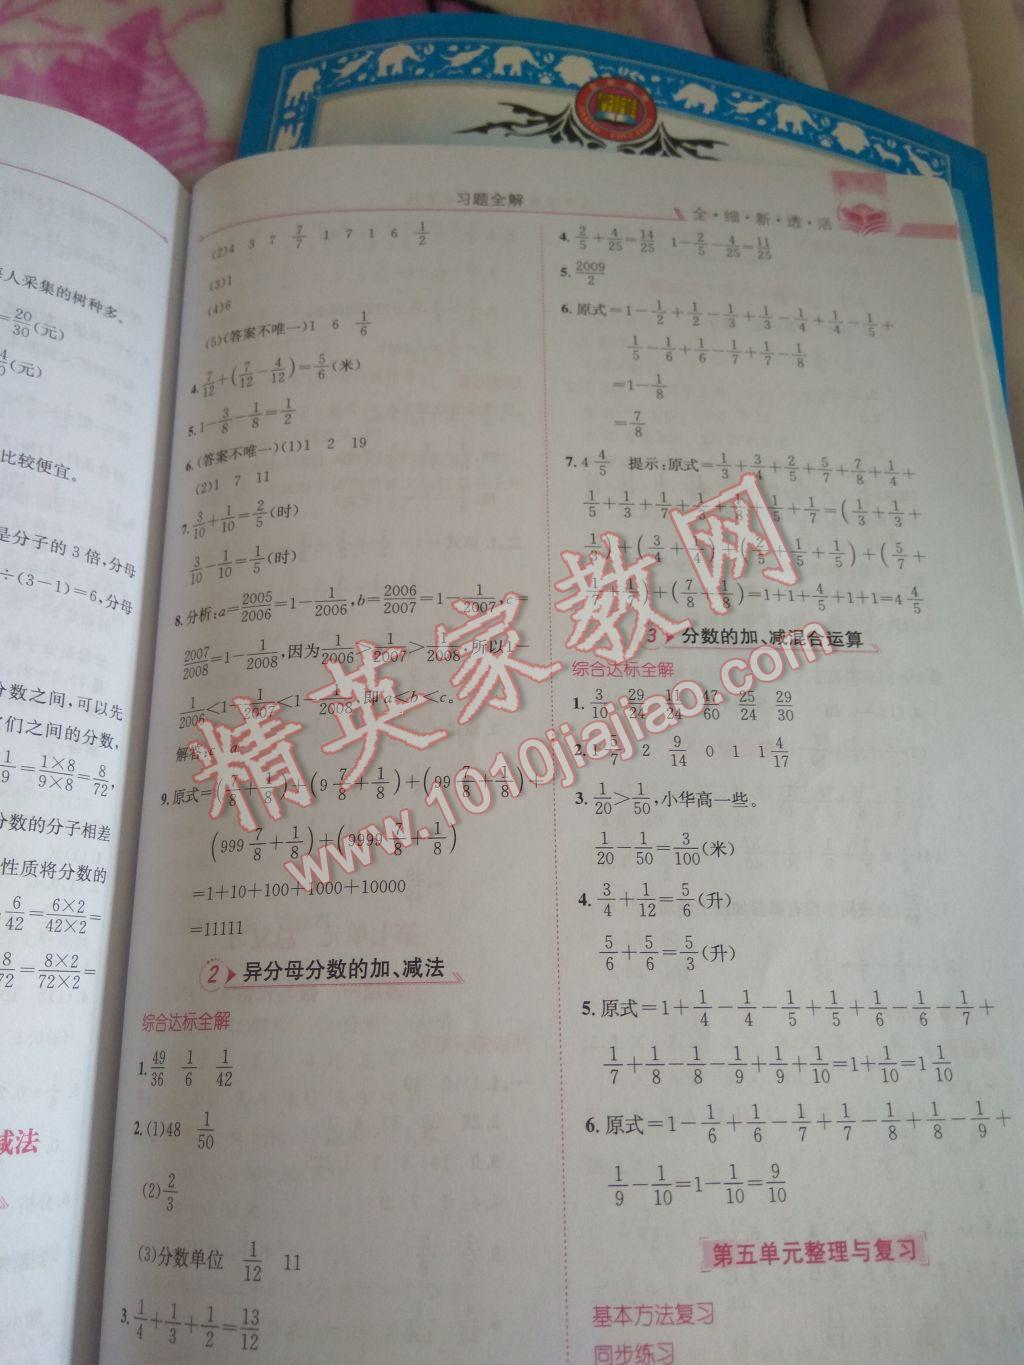 习题全解
全·细·新·透·活
人采集的树种多。
=20/30(元)
(元)
比较便宜。
是分子的3倍,分母
÷(3-1)=6,分母
分数之间,可以先
它们之间的分数,
1/9=1×8/9×8=8/72,
分数的分子相差
性质将分数的
6/42=6×2/42×2=
8/72=8×2/72×2=
减法
(2)4 3 7 7/7 1 7 1 6 1/2
(3)1
(4)6
(5)(答案不唯一)1 6 1/6
4.7/12+(7/12-4/12)=5/6(米)
5.1-3/8-1/8=1/2
6.(答案不唯一)(1)1 2 19
(2)1 7 11
7.3/10+1/10=2/5(时)
3/10-1/10=1/5(时)
8.分析:a=2005/2006=1-1/2006,b=2006/2007=1-1/2007,c=
2007/2008=1-1/2008,因为1/2006>1/2007>1/2008,所以1-
1/2006<1-1/2007<1-1/2008,即a<b<c。
解答:c a
9.原式=(7/8+1/8)+(9 7/8+1/8)+(99 7/8+1/8)+
(999 7/8+1/8)+(9999 7/8+1/8)
=1+10+100+1000+10000
=11111
2 异分母分数的加、减法
综合达标全解
1.49/36 1/6 1/42
2.(1)48 1/50
(2)2/3
(3)分数单位 1/12 11
3.1/4+1/3+1/2=13/12
4.2/5+4/25=14/25 1-2/5-4/25=11/25
5.2009/2
6.原式=1-1/2+1/2-1/3+1/3-1/4+1/4-1/5+
1/5-1/6+1/6-1/7+1/7-1/8
=1-1/8
=7/8
7.4 4/5 提示:原式=1/3+3/4+2/5+5/7+7/8+1/4+
1/5+1/3+1/7+1/3+1/8+1/5+1/7=(1/3+1/3+
1/3)+(3/4+1/4)+(2/5+1/5+1/5)+(5/7
+1/7+1/7)+(7/8+1/8)=1+1+4/5+1+1=4 4/5
3 分数的加、减混合运算
综合达标全解
1.3/10 29/24 11/24 47/60 25/24 29/30
2.1 5/7 2 9/14 0 1 1 4/17
3.1/20>1/50,小华高一些。
1/20-1/50=3/100(米)
4.3/4+1/12=5/6(升)
5/6+5/6=5/3(升)
5.原式=1+1/4-1/4-1/5+1/5+1/6-1/6-1/7+
1/7+1/8-1/8-1/9+1/9+1/10=1+1/10=1 1/10
6.原式=1-1/6+1/6-1/7+1/7-1/8+1/8-1/9+
1/9-1/10=1-1/10=9/10
第五单元整理与复习
基本方法复习
同步练习
精英家教网
www.1010jiajiao.com